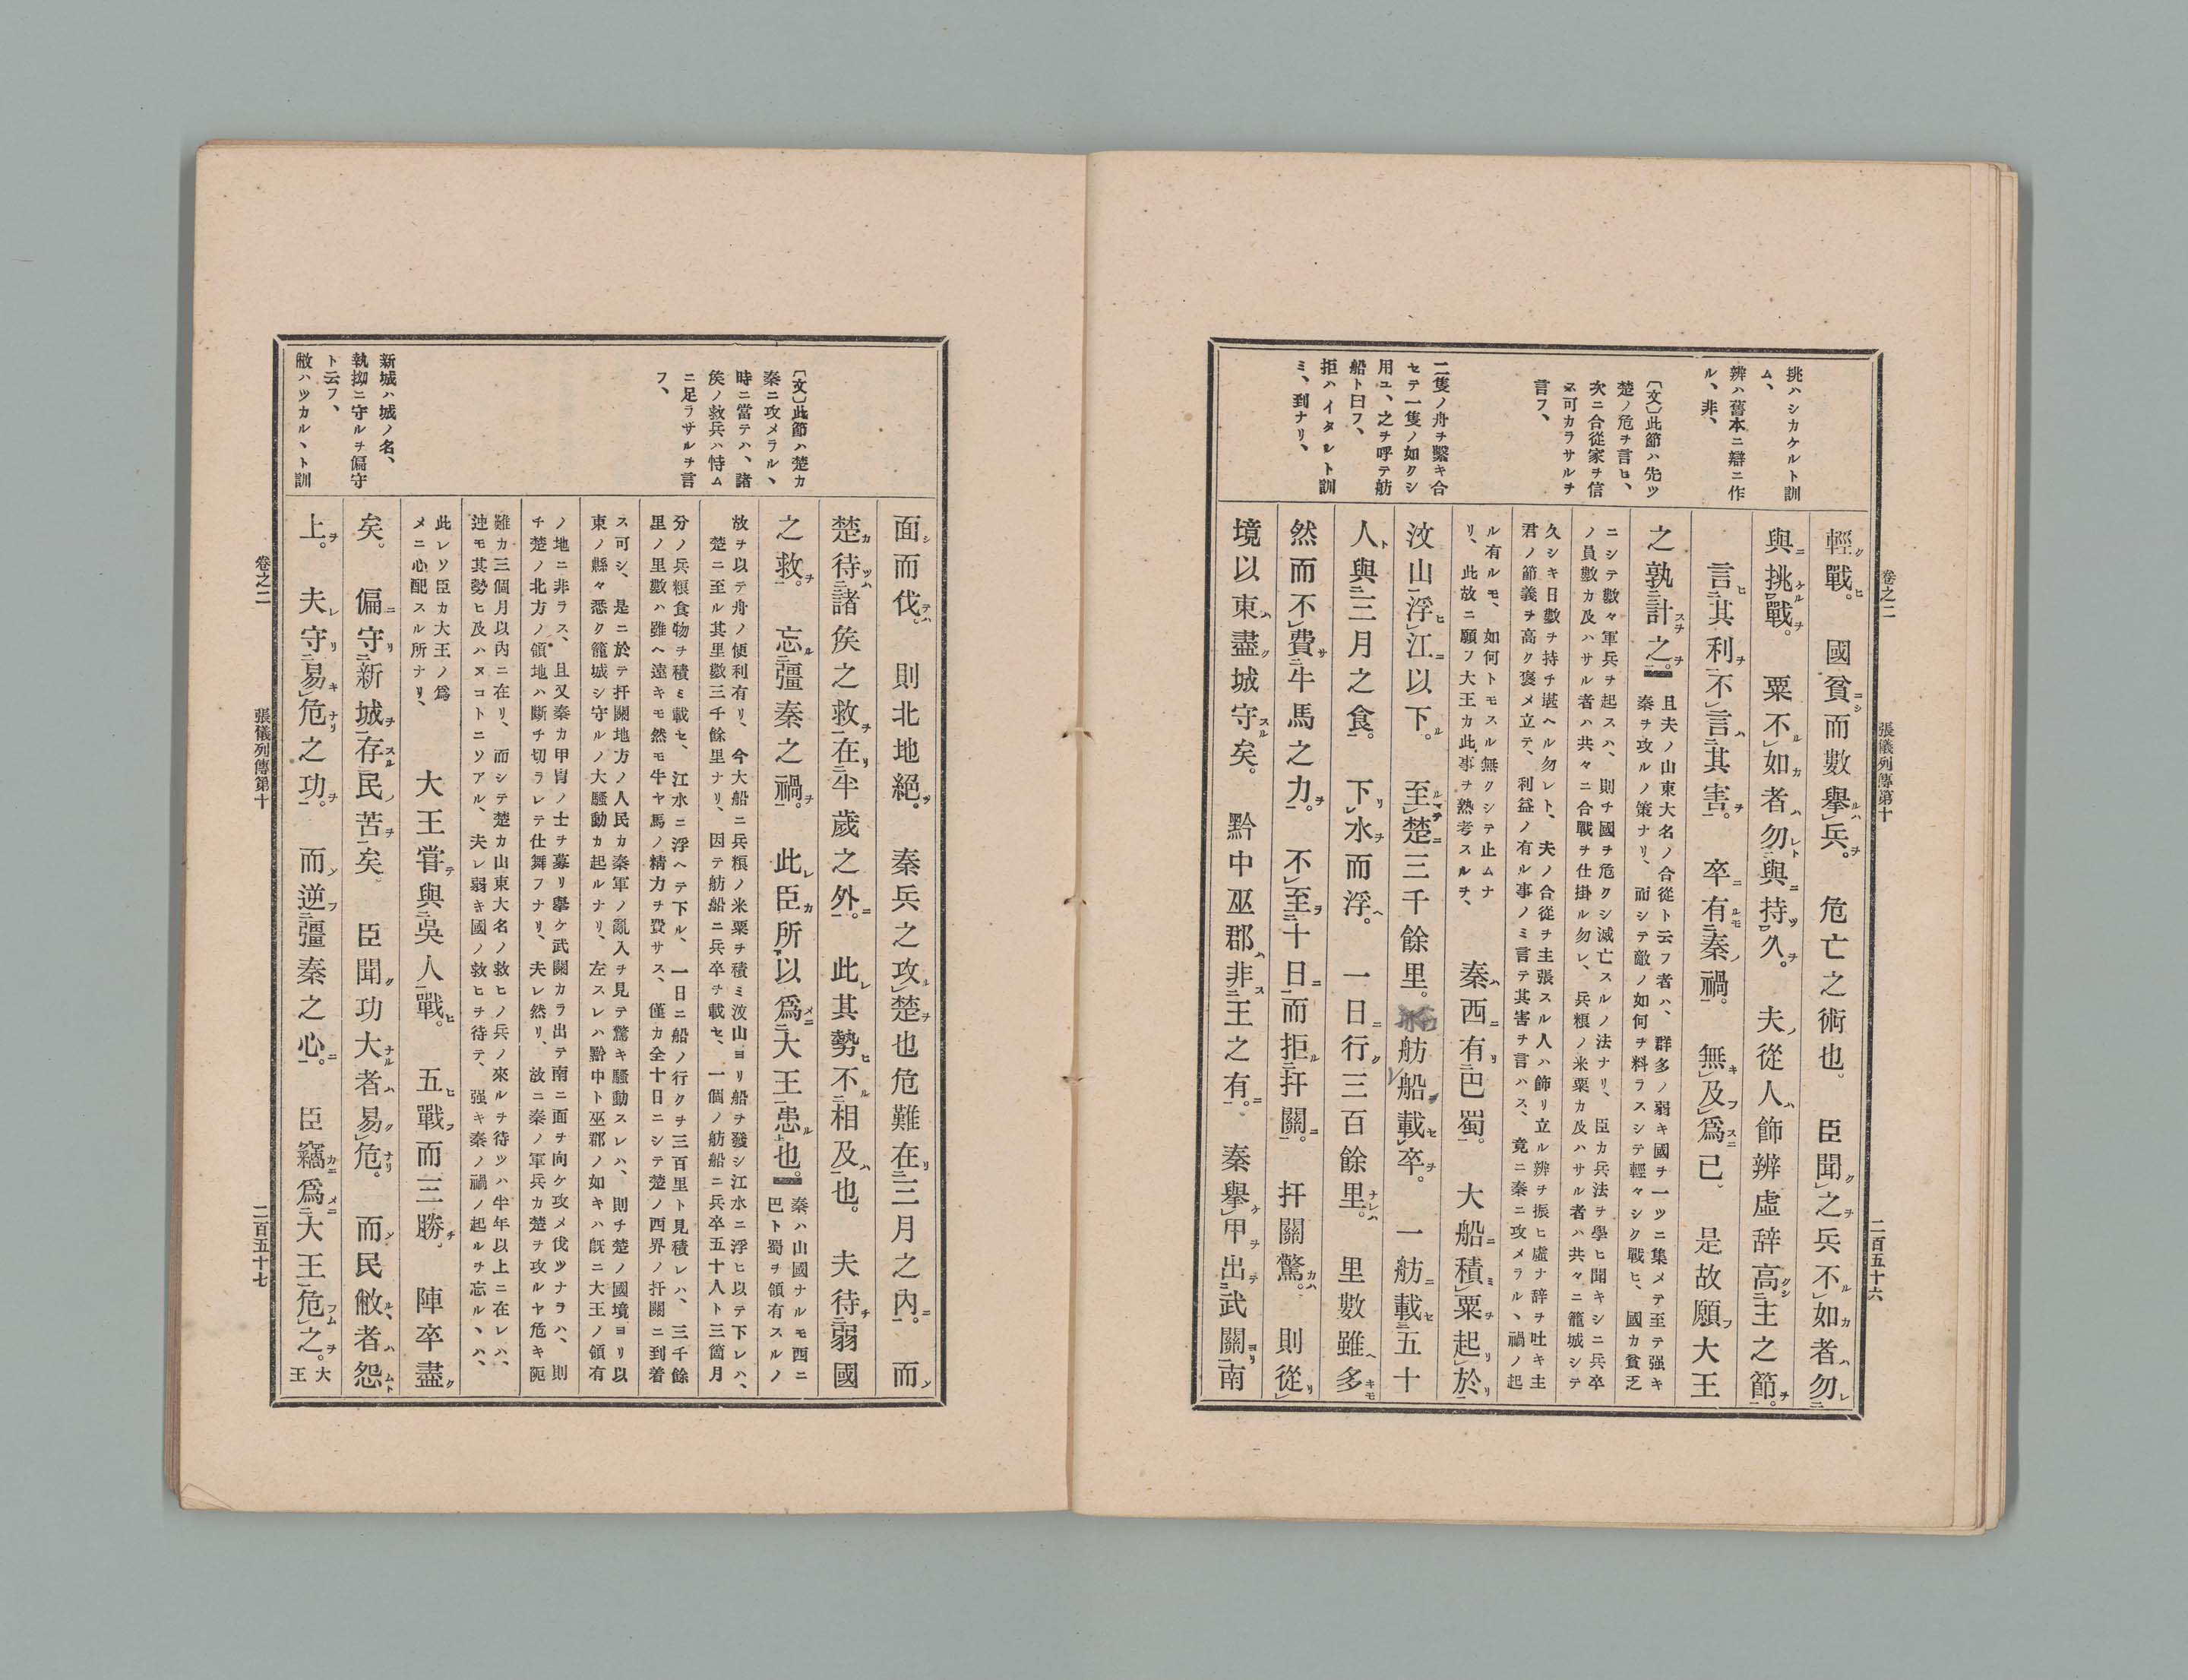 卷之二
張儀列傳第十
二百五十六
挑ハシカケルト訓
ム、
辨ハ舊本ニ辯ニ作
ル、非、
〔文〕此節ハ先ツ
楚ノ危ヲ言ヒ、
次ニ合從家ヲ信
ス可カラサルヲ
言フ、
二隻ノ舟ヲ繫キ合
セテ一隻ノ如クシ
用ユ、之ヲ呼テ舫
船ト曰フ、
拒ハイタルト訓
ミ、到ナリ、
輕戰。國貧而數擧兵。危亡之術也。臣聞之兵不如者勿
與挑戰。粟不如者勿與持久。夫從人飾辨虛辭高主之節。
言其利不言其害。卒有秦禍。無及爲已。是故願大王
之孰計之。
且夫ノ山東大名ノ合從ト云フ者ハ、群多ノ弱キ國ヲ一ツニ集メテ至テ强キ
秦ヲ攻ルノ策ナリ、而シテ敵ノ如何ヲ料ラスシテ輕々シク戰ヒ、國カ貧乏
ニシテ數々軍兵ヲ起スハ、則チ國ヲ危クシ滅亡スルノ法ナリ、臣カ兵法ヲ學ヒ聞キシニ兵卒
ノ員數カ及ハサル者ハ共々ニ合戰ヲ仕掛ル勿レ、兵粮ノ米粟カ及ハサル者ハ共々ニ籠城シテ
久シキ日數ヲ持チ堪ヘル勿レト、夫ノ合從ヲ主張スル人ハ飾リ立ル辨ヲ振ヒ虛ナ辞ヲ吐キ主
君ノ節義ヲ高ク褒メ立テ、利益ノ有ル事ノミ言テ其害ヲ言ハス、竟ニ秦ニ攻メラルヽ禍ノ起
ル有ルモ、如何トモスル無クシテ止ムナ
リ、此故ニ願フ大王カ此事ヲ熟考スルヲ、
秦西有巴蜀。大船積粟起於
汶山浮江以下。至楚三千餘里。舫船載卒。一舫載五十
人與三月之食。下水而浮。一日行三百餘里。里數雖多
然而不費牛馬之力。不至十日而拒扞關。扞關驚。則從
境以東盡城守矣。黔中巫郡非王之有。秦擧甲出武關南
〔文〕此節ハ楚カ
秦ニ攻メラルヽ
時ニ當テハ、諸
侯ノ救兵ハ恃ム
ニ足ラサルヲ言
フ、
新城ハ城ノ名、
執拗ニ守ルヲ偏守
ト云フ、
敝ハツカルヽト訓
面而伐。則北地絕。秦兵之攻楚也危難在三月之內。而
楚待諸侯之救在半歲之外。此其勢不相及也。夫待弱國
之救。忘彊秦之禍。此臣所以爲大王患也。
秦ハ山國ナルモ西ニ
巴ト蜀ヲ領有スルノ
故ヲ以テ舟ノ便利有リ、今大船ニ兵粮ノ米粟ヲ積ミ汶山ヨリ船ヲ發シ江水ニ浮ヒ以テ下レハ、
楚ニ至ル其里數三千餘里ナリ、因テ舫船ニ兵卒ヲ載セ、一個ノ舫船ニ兵卒五十人ト三箇月
分ノ兵粮食物ヲ積ミ載セ、江水ニ浮ヘテ下ル、一日ニ船ノ行クヲ三百里ト見積レハ、三千餘
里ノ里數ハ雖ヘ遠キモ然モ牛ヤ馬ノ精力ヲ費サス、僅カ全十日ニシテ楚ノ西界ノ扞關ニ到着
ス可シ、是ニ於テ扞關地方ノ人民カ秦軍ノ亂入ヲ見テ驚キ騷動スレハ、則チ楚ノ國境ヨリ以
東ノ縣々悉ク籠城シ守ルノ大騷動カ起ルナリ、左スレハ黔中ト巫郡ノ如キハ旣ニ大王ノ領有
ノ地ニ非ラス、且又秦カ甲冑ノ士ヲ募リ擧ケ武關カラ出テ南ニ面チ向ケ攻メ伐ツナラハ、則
チ楚ノ北方ノ領地ハ斷チ切ラレテ仕舞フナリ、夫レ然リ、故ニ秦ノ軍兵カ楚ヲ攻ルヤ危キ阨
難カ三個月以內ニ在リ、而シテ楚カ山東大名ノ救ヒノ兵ノ來ルヲ待ツハ半年以上ニ在レハ、
迚モ其勢ヒ及ハヌコトニソアル、夫レ弱キ國ノ救ヒヲ待テ、强キ秦ノ禍ノ起ルヲ忘ルヽハ、
此レソ臣カ大王ノ爲
メニ心配スル所ナリ、
大王嘗與吳人戰。五戰而三勝。陣卒盡
矣。偏守新城存民苦矣。臣聞功大者易危。而民敝者怨
上。夫守易危之功。而逆彊秦之心。臣竊爲大王危之。
大
王
卷之二
張儀列傳第十
二百五十七